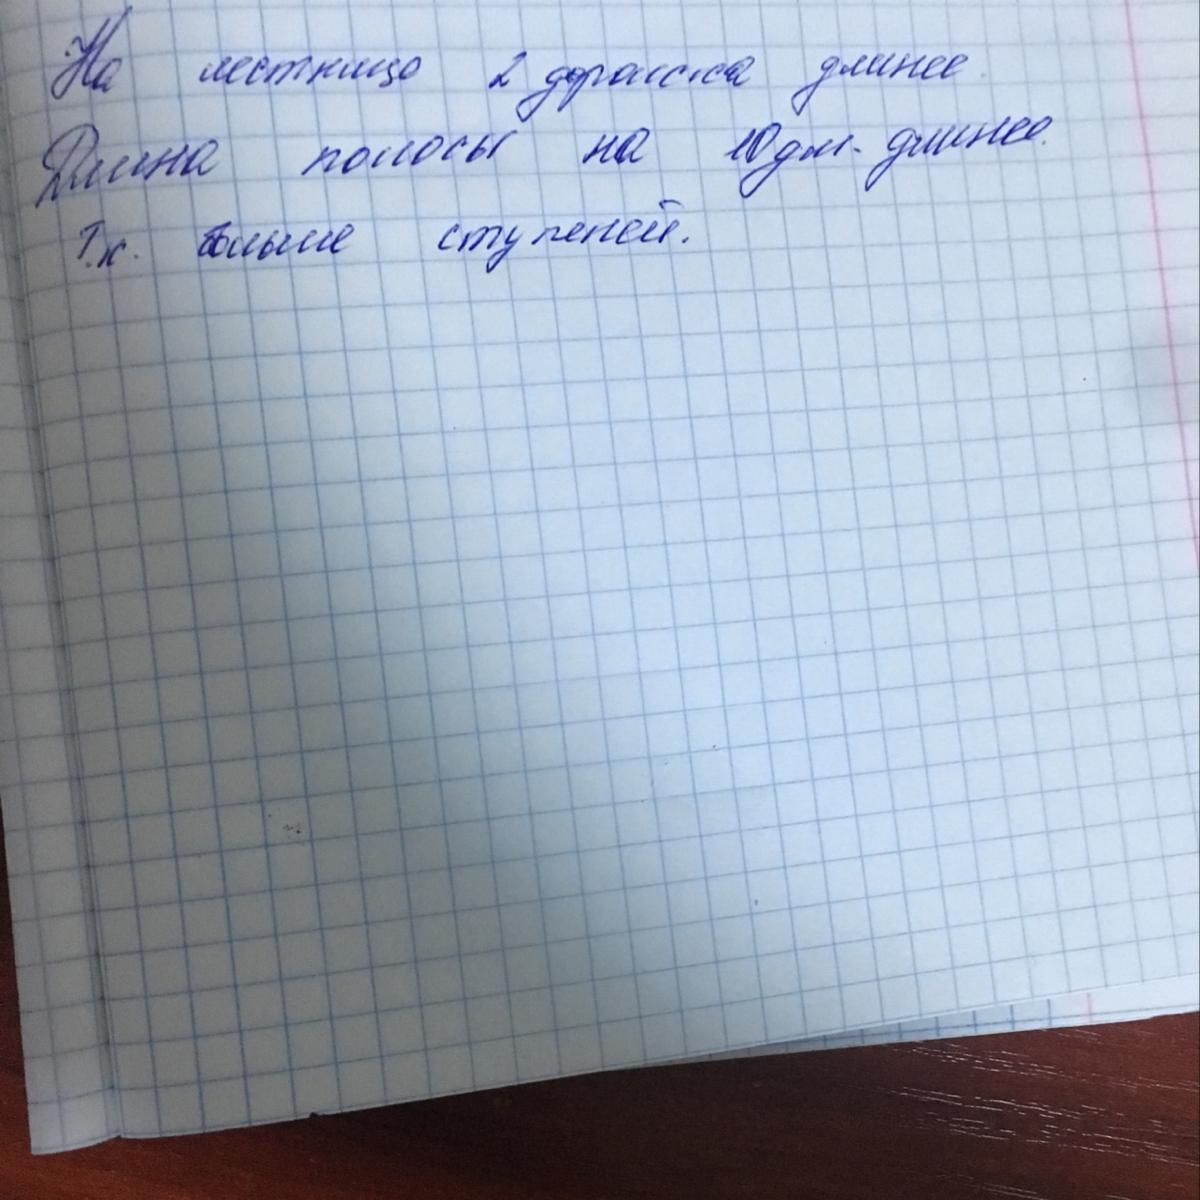 На лестнице 2 дорожка длинее.
Длина полосы на 10 дм. длинее.
Т.к. больше ступеней.